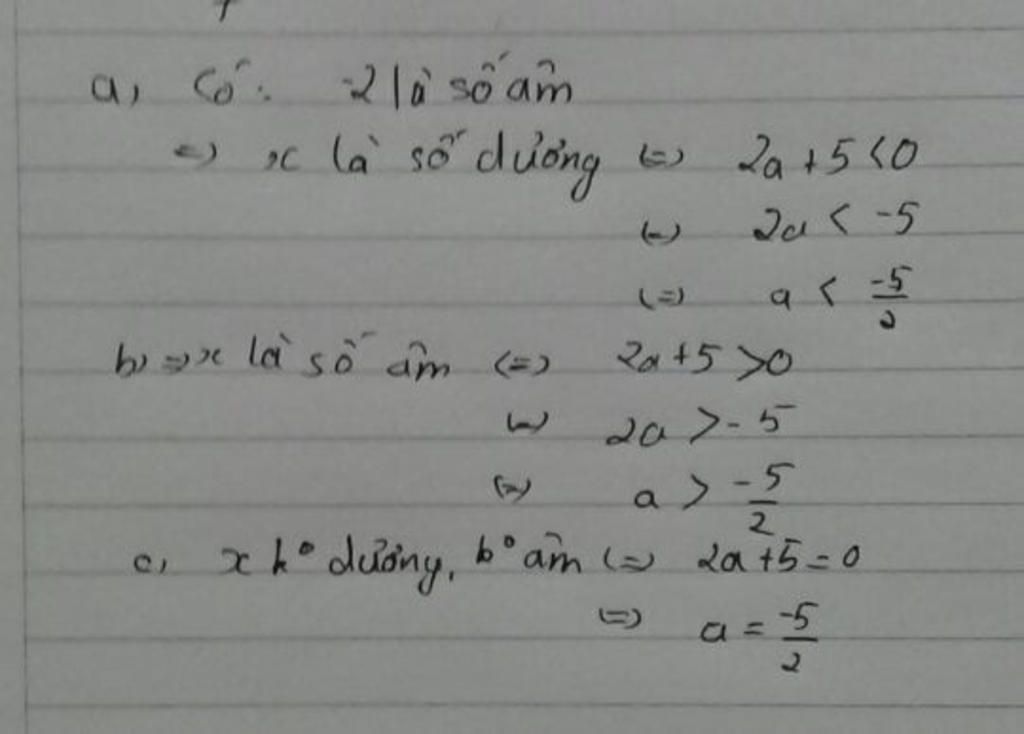 a, Có: -2 là số âm
=> x là số dương <=> 2a + 5 < 0
<=> 2a < -5
<=> a < -5/2
b, => x là số âm <=> 2a + 5 > 0
<=> 2a > -5
<=> a > -5/2
c, x k° dương, k° âm <=> 2a + 5 = 0
<=> a = -5/2